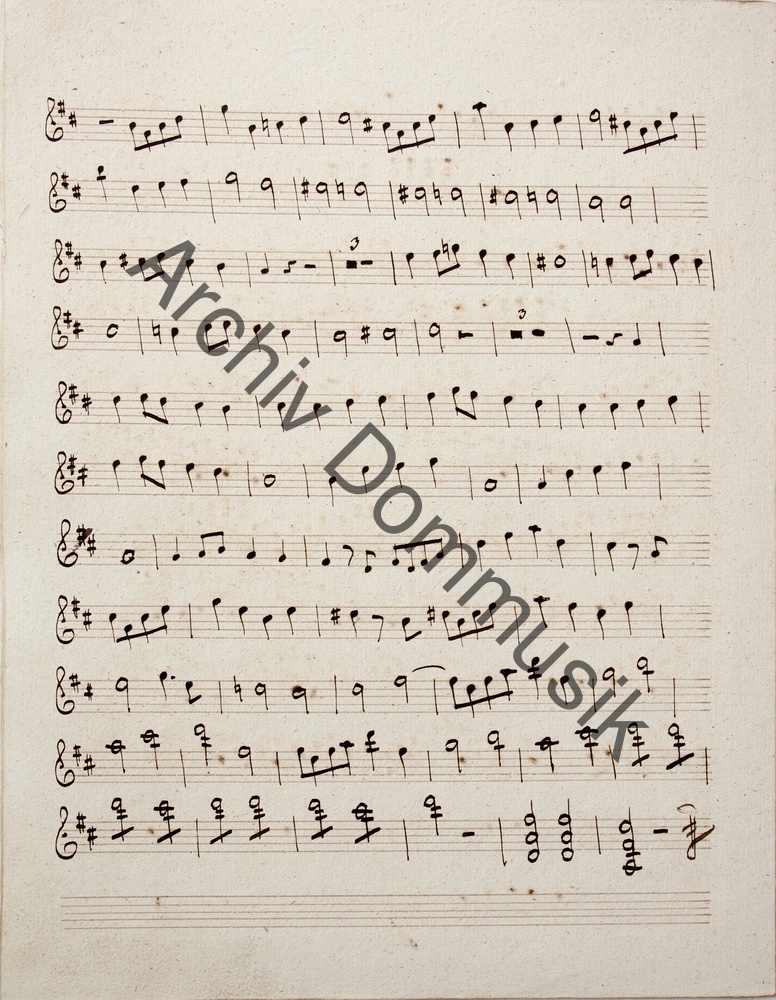 3
3
Archiv Dommusik